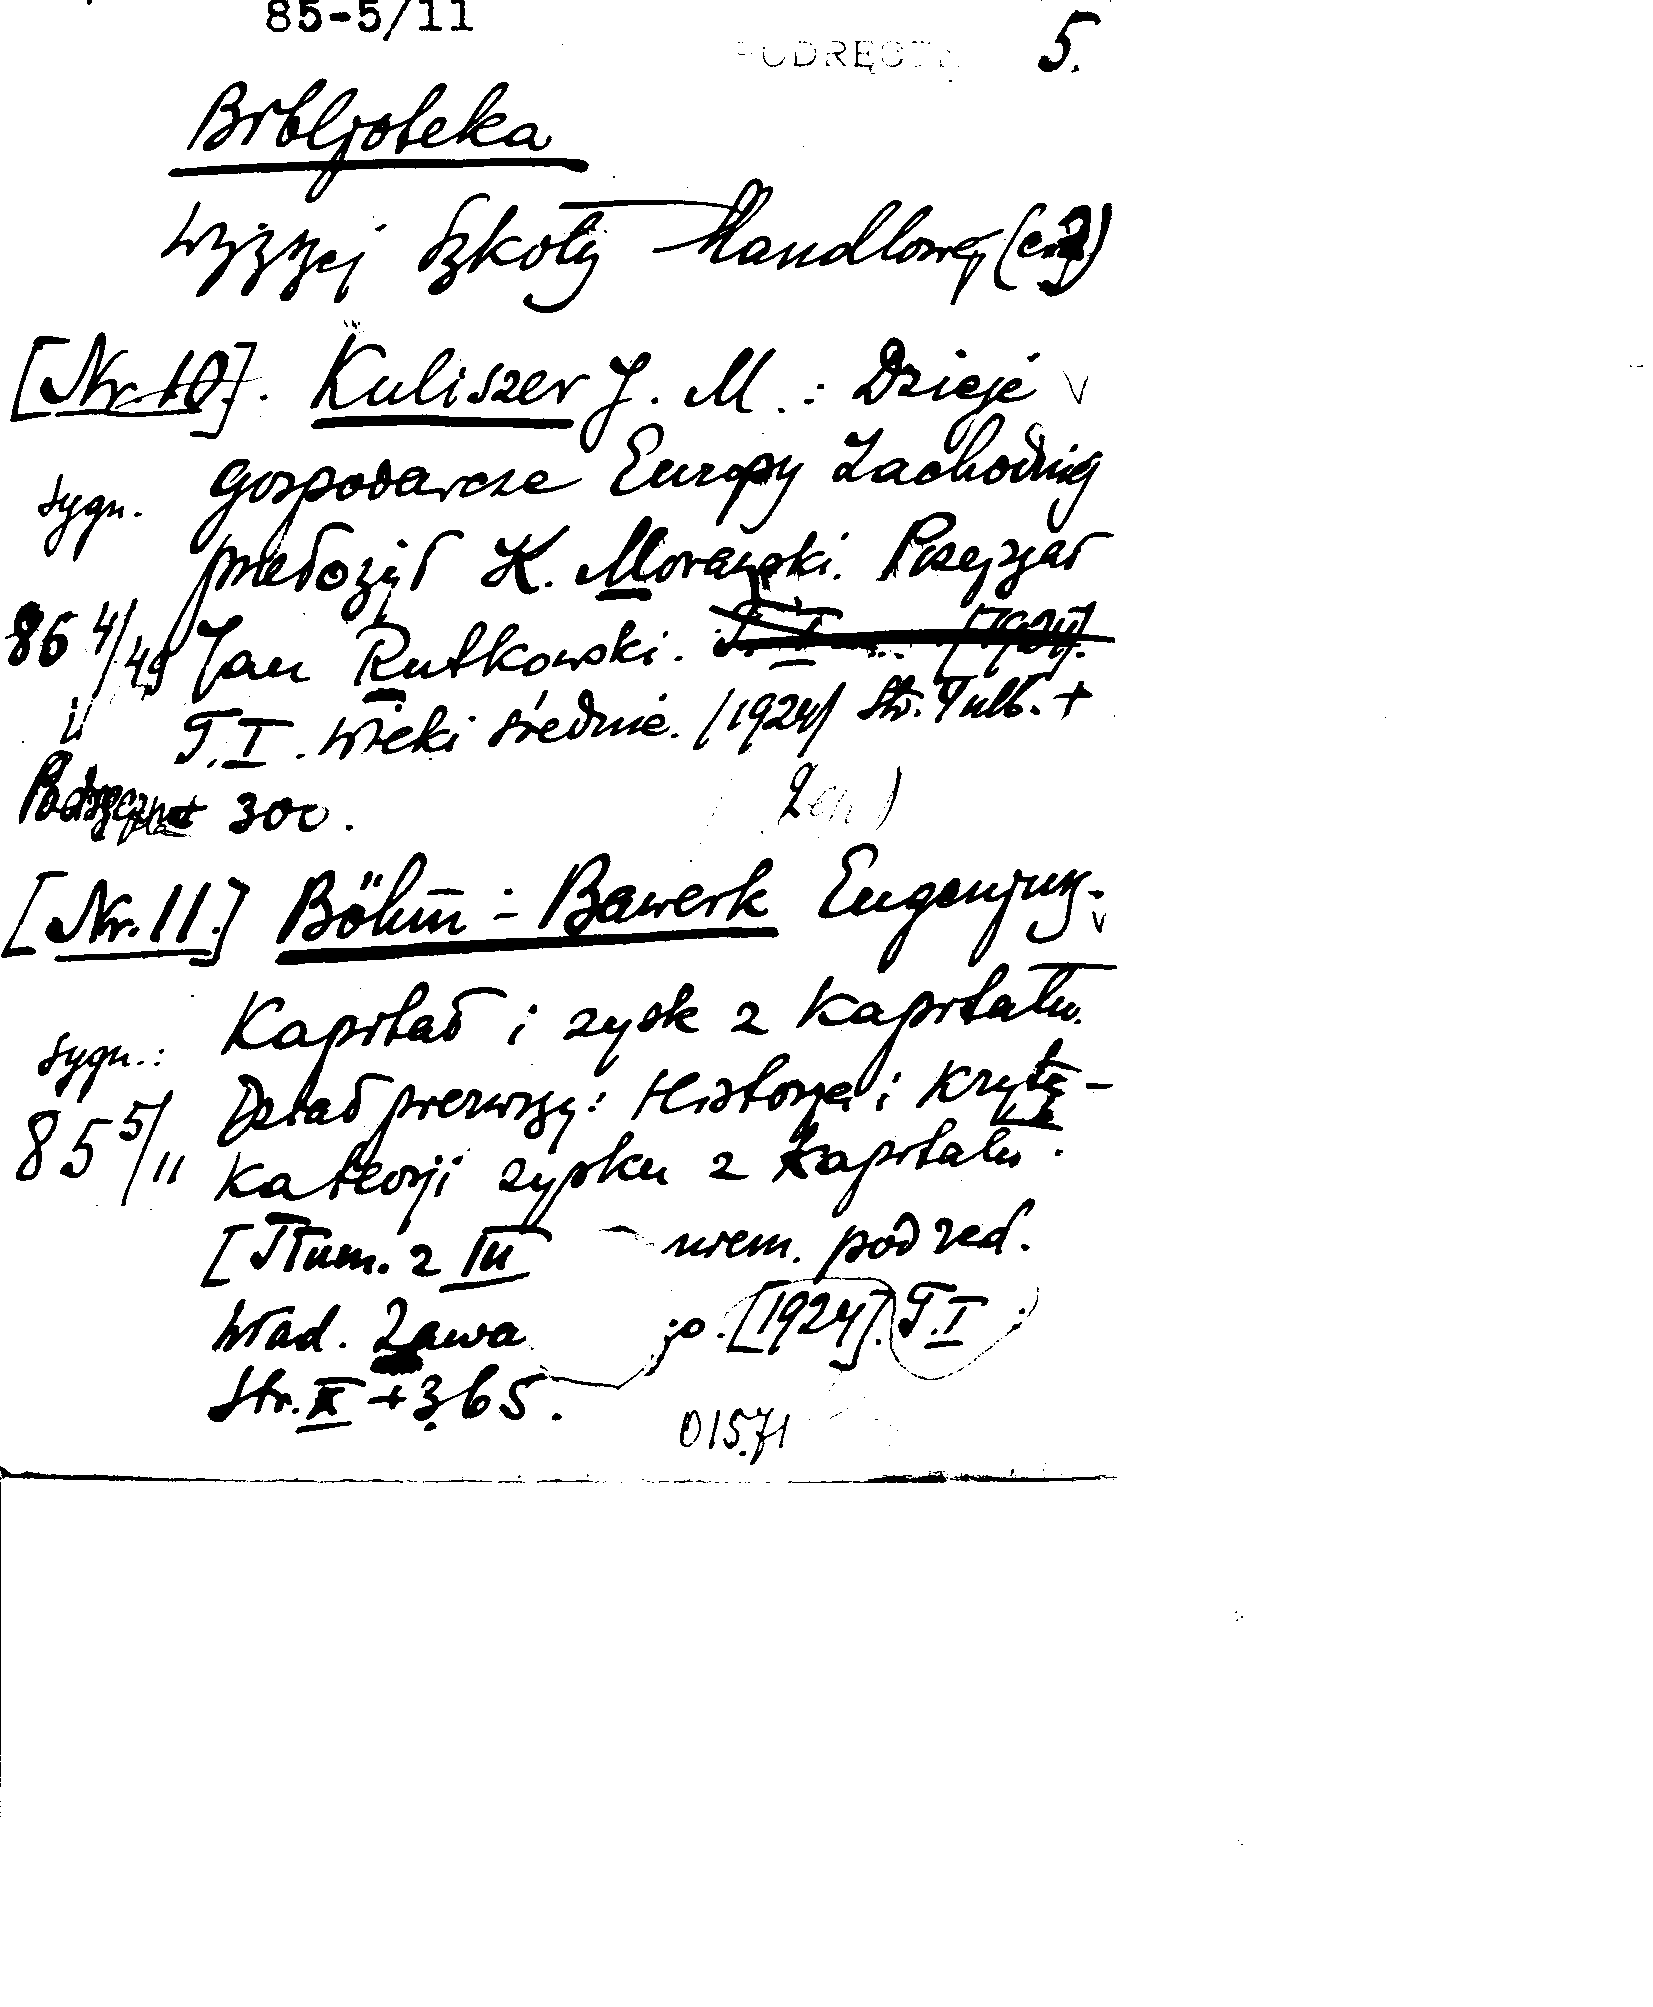 85-5/11
PODRĘCZN
5.
Bibljoteka
Wyższej Szkoły Handlowej
[Nr 10]. Kuliszer J. M.: Dzieje
sygn. gospodarcze Europy Zachodniej
przełożył K. Morawski. Przejrzał
86 4/49 Jan Rutkowski. T. I [1924].
i T. I. Wieki średnie. /1924/ Str. 1 nlb. +
Podręczna 300. 2 eg)
[Nr. 11.] Böhm - Bawerk Eugenjusz.
Kapitał i zysk z kapitału.
sygn.: Dział pierwszy: Historja i kryty-
85 5/11 ka teorji zysku z kapitału.
[Tłum. z III niem. pod red.
Wład. Zawa go. [1924]. T. I
Str. X + 365.
01571